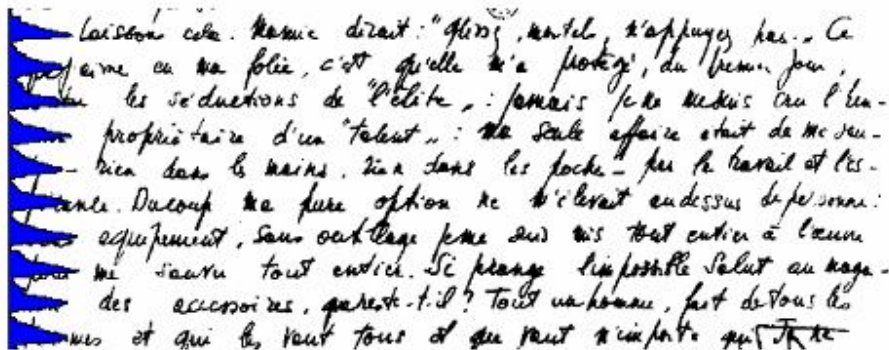 Laissons cela. Mamie dirait : "Glissez, mortels, n'appuyez pas„. Ce
j'aime en ma folie, c'est qu'elle m'a protégé, du premier jour,
les séductions de "l'élite„ : jamais je ne me suis cru l'heu-
propriétaire d'un "talent„ : ma seule affaire était de me sau-
- rien dans les mains, rien dans les poches - par le travail et l'es-
Ducoup ma pure option ne m'élevait au dessus de personne :
équipement, sans outillage je me suis mis tout entier à l'œuvre
me sauver tout entier. Si je range l'impossible Salut au maga-
des accessoires, que reste-t-il ? Tout un homme, fait de tous les
et qui les vaut tous et que vaut n'importe qui